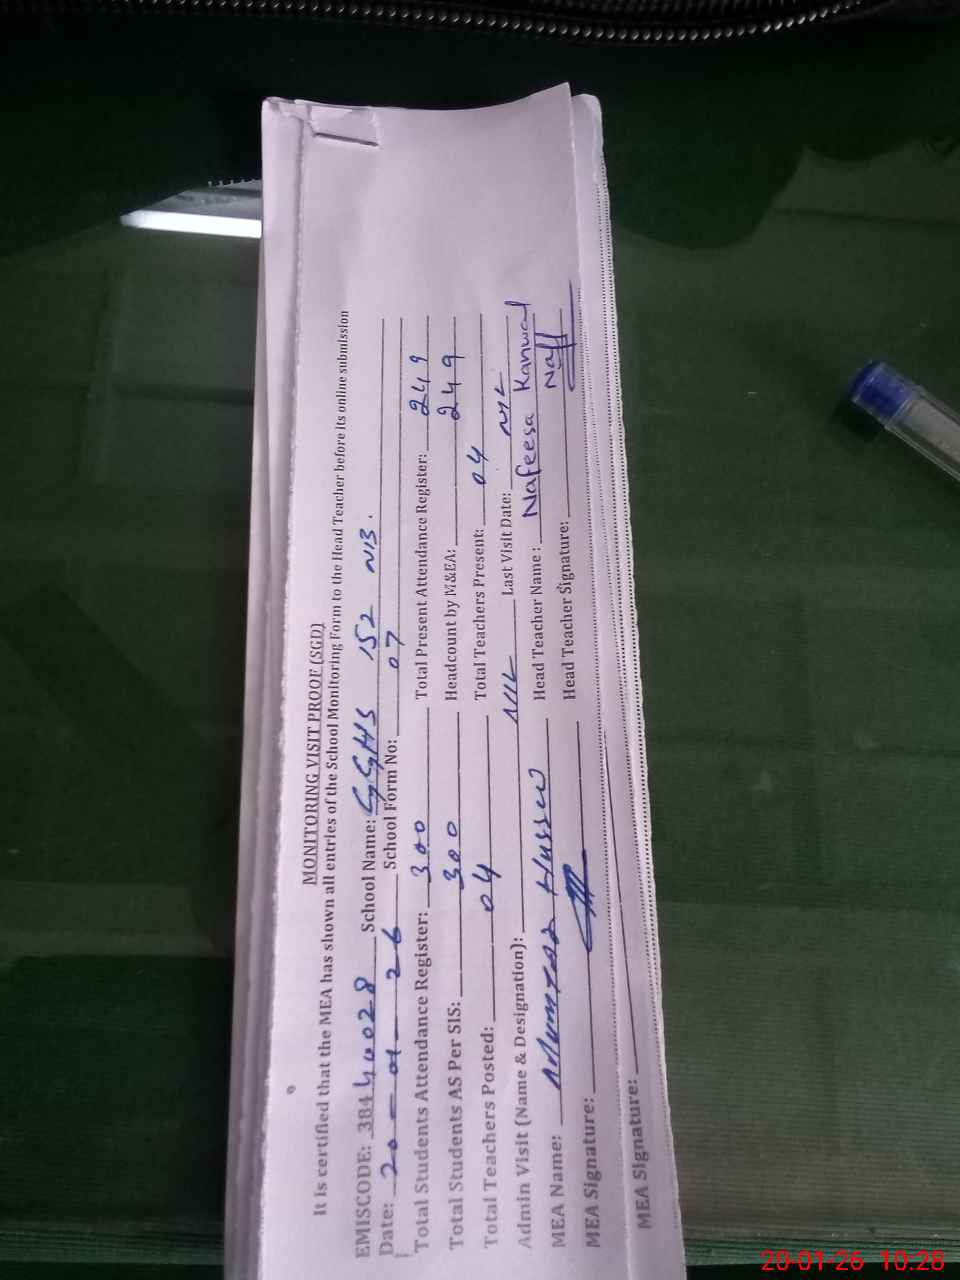 MONITORING VISIT PROOF (SGD)
It is certified that the MEA has shown all entries of the School Monitoring Form to the Head Teacher before its online submission
EMISCODE: 38440028 School Name: GGHS 152 NB.
Date: 20-01-26 School Form No: 07
Total Students Attendance Register: 300 Total Present Attendance Register: 249
Total Students AS Per SIS: 300 Headcount by M&EA: 249
Total Teachers Posted: 04 Total Teachers Present: 04
Admin Visit (Name & Designation): NIL Last Visit Date: NIL
MEA Name: Mumtaz Hussain Head Teacher Name : Nafeesa Kanwal
MEA Signature: Head Teacher Signature: Naff
MEA Signature:
20-01-26 10:28